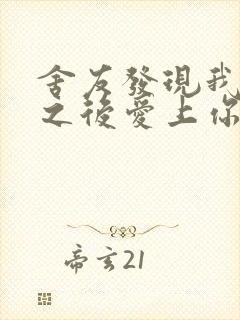 舍友發現我
之後愛上你
帝玄21